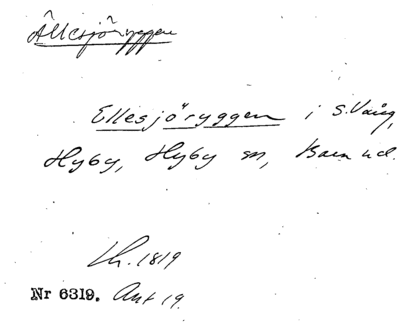 Ällesjöryggen
Ellesjöryggen i S. Vång,
Hyby, Hyby sn, Bara hd.
Lh. 1819
Nr 6319. Ant 19.